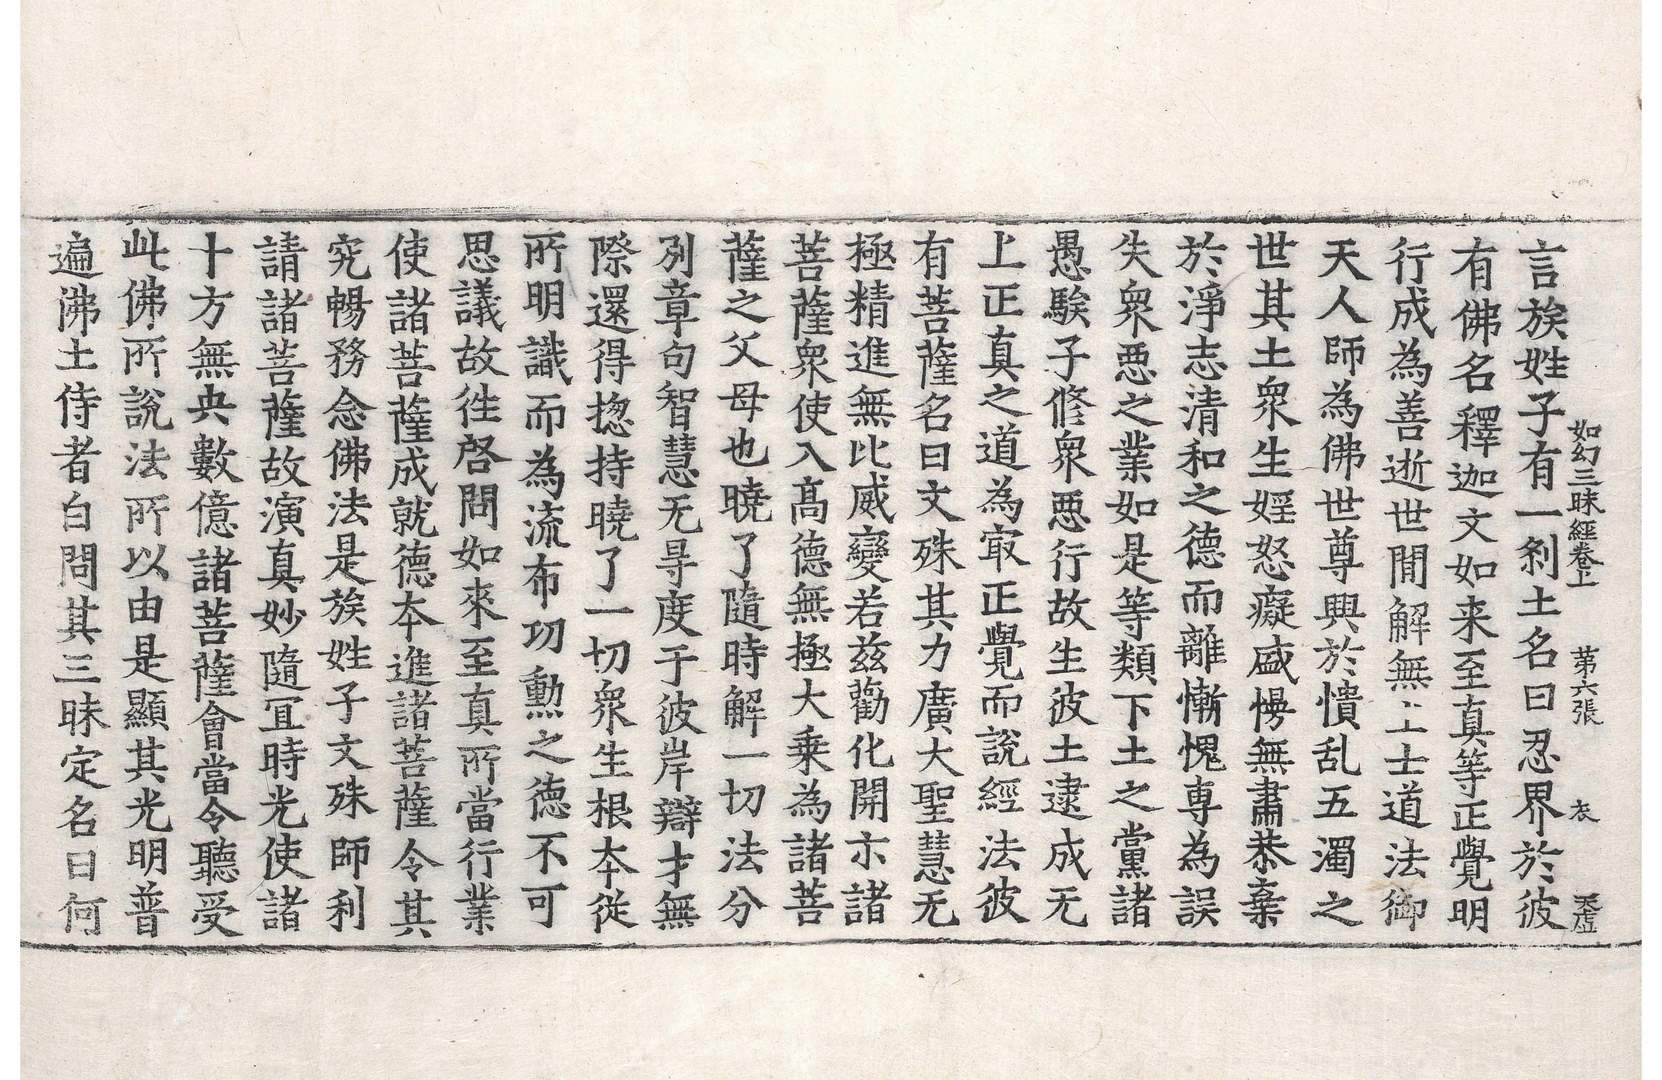 如幻三昧經卷上　第六張　衣　天虛
言族姓子有一刹土名曰忍界於彼
有佛名釋迦文如来至真等正覺明
行成為善逝世間解無上士道法御
天人師為佛世尊興於憒乱五濁之
世其土眾生婬怒癡盛慢無肅恭棄
於淨志清和之德而離慚愧專為誤
失眾惡之業如是等類下土之黨諸
愚騃子脩眾惡行故生彼土逮成无
上正真之道為㝡正覺而說經法彼
有菩薩名曰文殊其力廣大聖慧无
極精進無比威變若茲勸化開示諸
菩薩眾使入髙德無極大乗為諸菩
薩之父母也曉了隨時解一切法分
別章句智慧无㝵度于彼岸辯才無
際還得揔持曉了一切眾生根本從
所明識而為流布功勲之德不可
思議故徃啓問如來至真所當行業
使諸菩薩成就德本進諸菩薩令其
究暢務念佛法是族姓子文殊師利
請諸菩薩故演真妙隨宜時光使諸
十方無央數億諸菩薩會當令聽受
此佛所說法所以由是顯其光明普
遍佛土侍者白問其三昧定名曰何